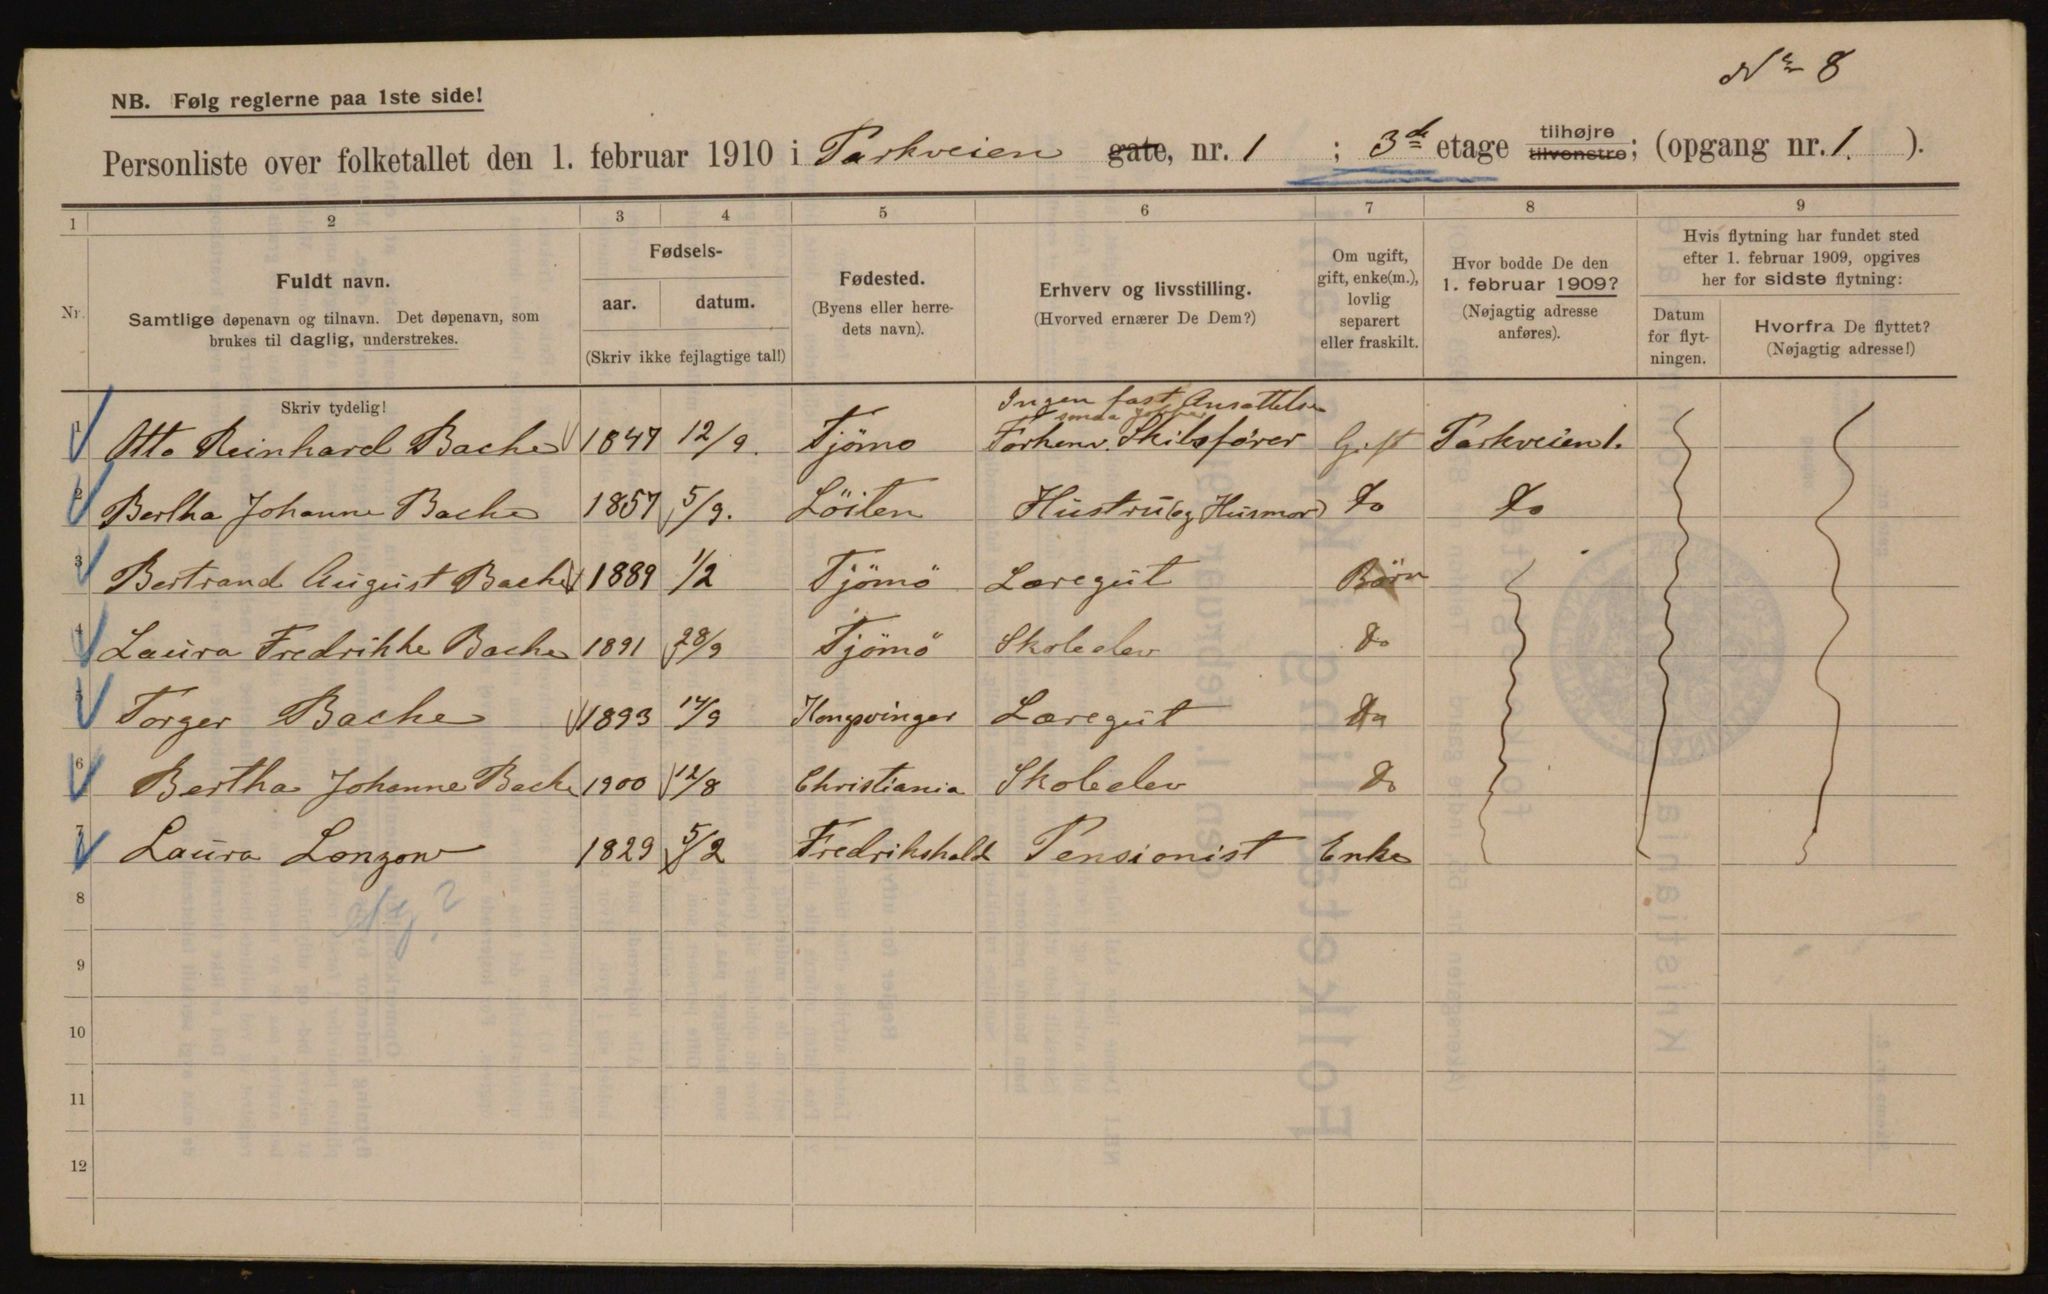 Nr 8
NB. Følg reglerne paa 1ste side!
Personliste over folketallet den 1. februar 1910 i Parkveien gate, nr. 1 ; 3de etage tilhøjre tilvenstre; (opgang nr. 1. ).
1 2 3 4 5 6 7 8 9
Nr.
Fuldt navn.
Samtlige døpenavn og tilnavn. Det døpenavn, som
brukes til daglig, understrekes.
Fødsels-
aar. datum.
(Skriv ikke fejlagtige tal!)
Fødested.
(Byens eller herre-
dets navn).
Erhverv og livsstilling.
(Hvorved ernærer De Dem?)
Om ugift,
gift, enke(m.),
lovlig
separert
eller fraskilt.
Hvor bodde De den
1. februar 1909?
(Nøjagtig adresse
anføres).
Hvis flytning har fundet sted
efter 1. februar 1909, opgives
her for sidste flytning:
Datum
for flyt-
ningen.
Hvorfra De flyttet?
(Nøjagtig adresse!)
Skriv tydelig!
Ingen fast Ansættelse
1 Otto Reinhard Bache 1847 12/9. Tjömo Forhenv. Skibsfører Gift Parkveien 1.
2 Bertha Johanne Bache 1857 5/9. Löiten Hustru (og Husmor) Do Do
3 Bertrand August Bache 1889 1/2 Tjömö Læregut Börn
4 Laura Fredrikke Bache 1891 28/9 Tjömö Skoleelev Do
5 Torger Bache 1893 14/9 Kongsvinger Læregut Do
6 Bertha Johanne Bache 1900 12/8 Christiania Skoleelev Do
7 Laura Lonzow 1829 5/2 Fredrikshald Pensionist Enke
8
9
10
11
12